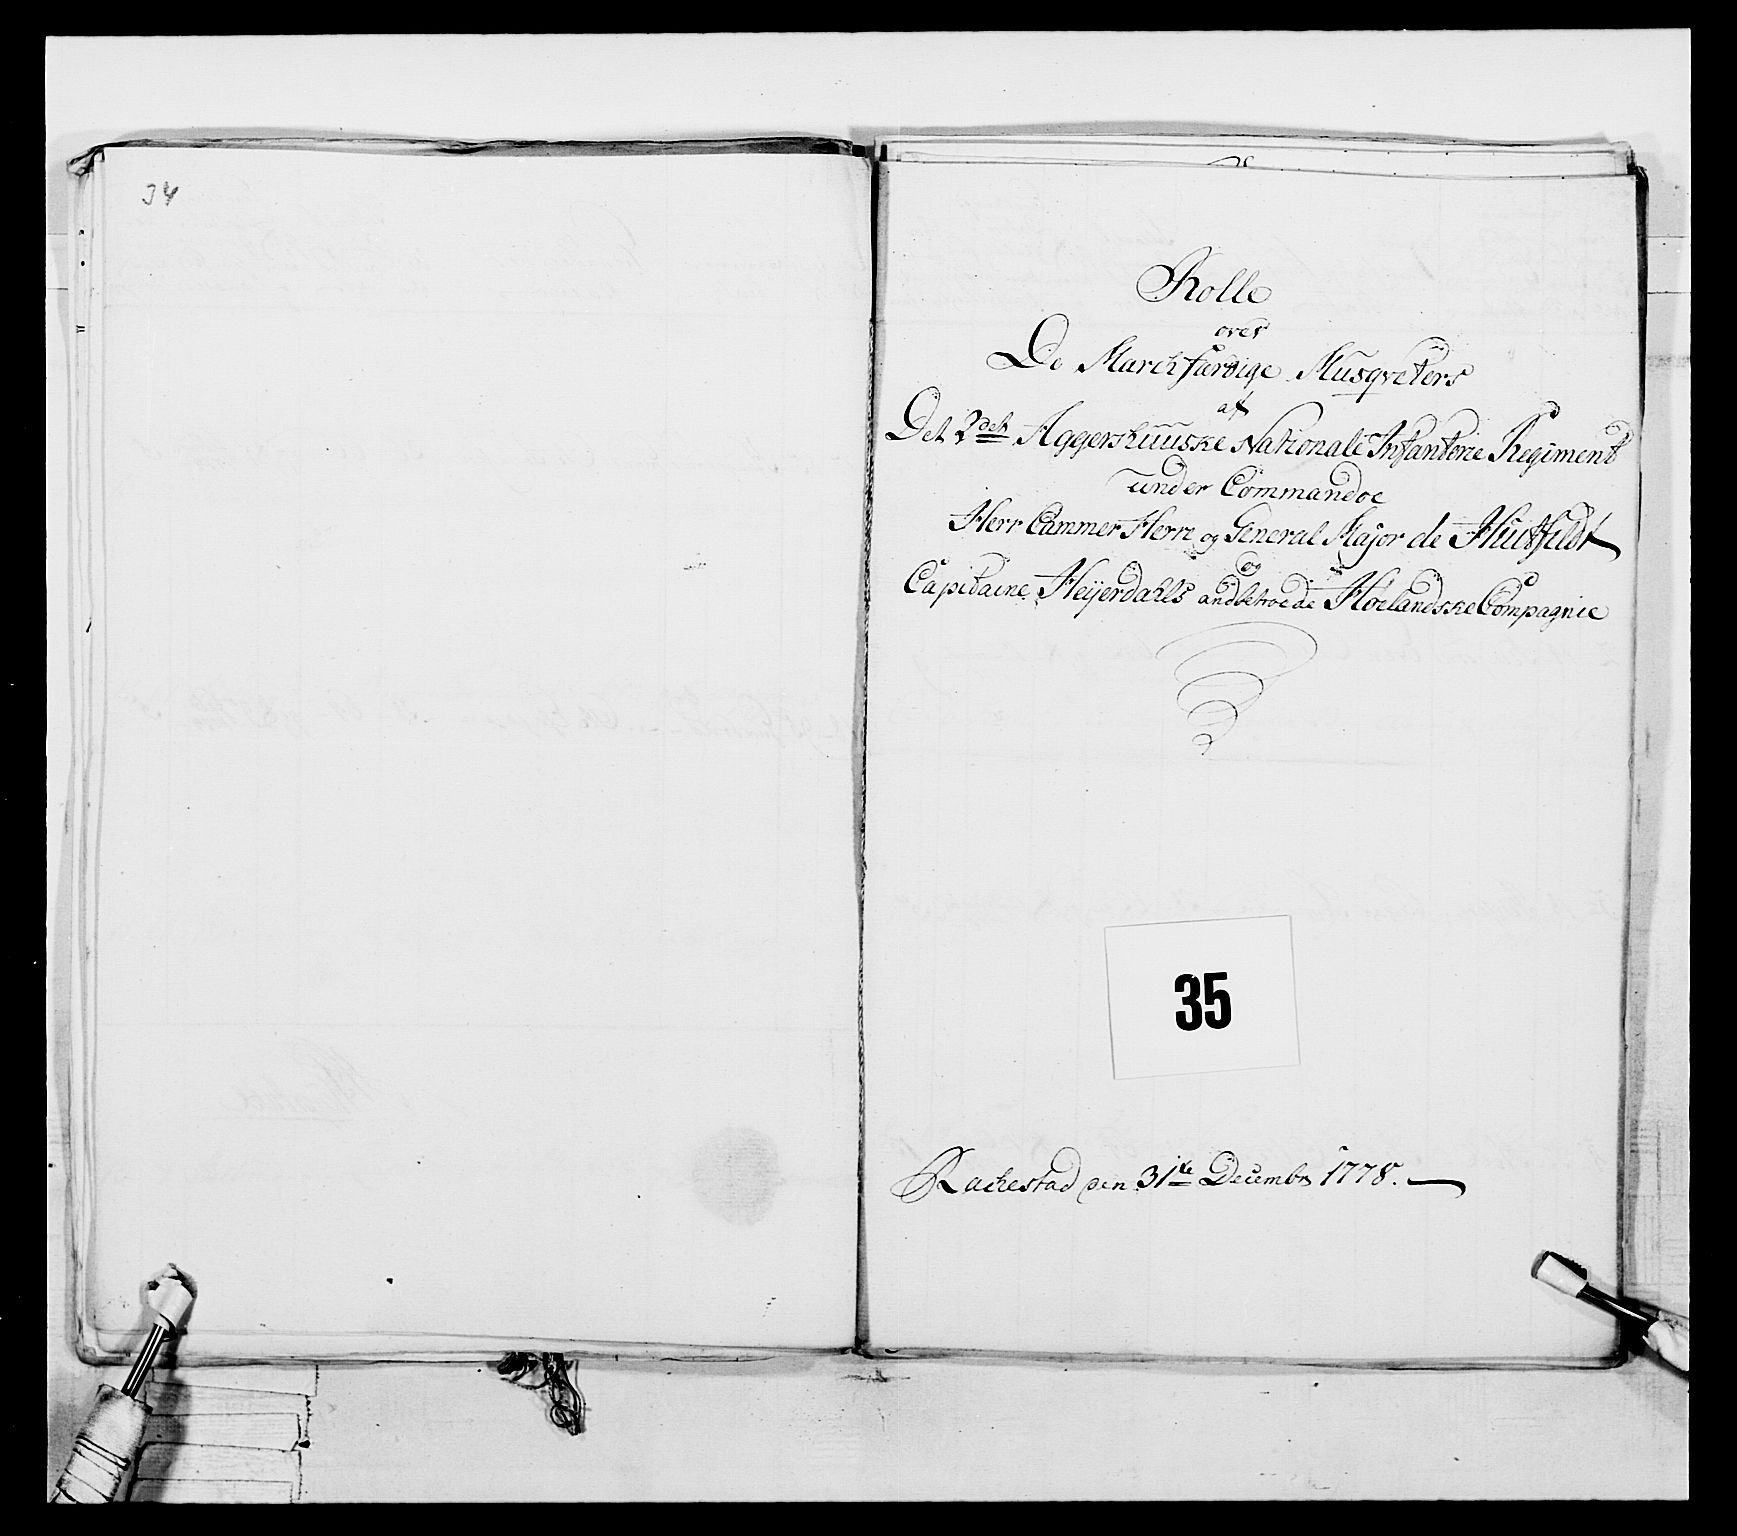 34
Rolle
over
De Marchfærdige Musqveters
af
Det 2det Aggershuuske Nationale Infanterie Regiment
under Commandoe
Herr Cammer Herre og General Major de Huitfeldt
og
Capitaine Heyerdahls andbetroede Hølandske Compagnie
35
Rackestad den 31te Decembr 1778.